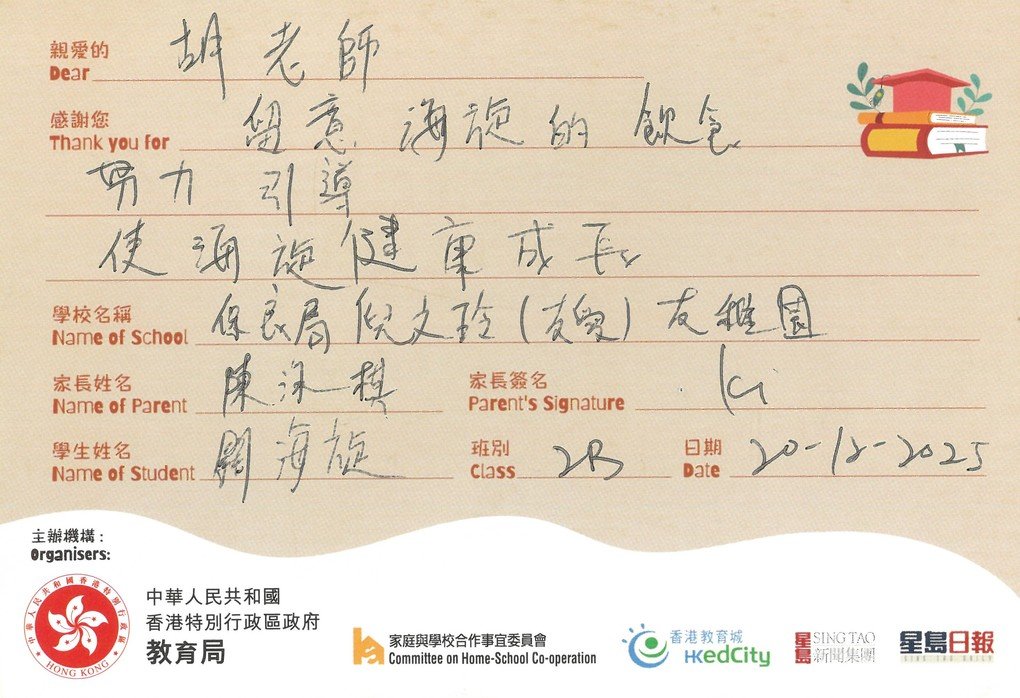 親愛的
Dear 胡老師
感謝您
Thank you for 留意 海旋的 飲食
努力 引導
使海旋健康成長
學校名稱
Name of School 保良局倪文玲(友愛)友稚園
家長姓名
Name of Parent 陳泳棋
家長簽名
Parent's Signature Ki
學生姓名
Name of Student 海旋
班別
Class 2B
日期
Date 20-12-2025
主辦機構:
Organisers:
中華人民共和國香港特別行政區
HONG KONG
中華人民共和國
香港特別行政區政府
教育局
家庭與學校合作事宜委員會
Committee on Home-School Co-operation
香港教育城
HKedCity
星島 SING TAO
新聞集團
星島日報
SING TAO DAILY